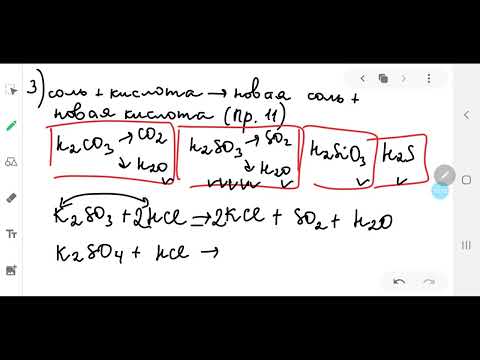 3) соль + кислота → новая соль +
новая кислота (Пр. 11)
H₂CO₃ → CO₂ ↓ H₂O H₂SO₃ → SO₂ ↓ H₂O H₂SiO₃ H₂S
K₂SO₃ + 2HCl ⇒ 2KCl + SO₂ + H₂O
K₂SO₄ + HCl →
Tт